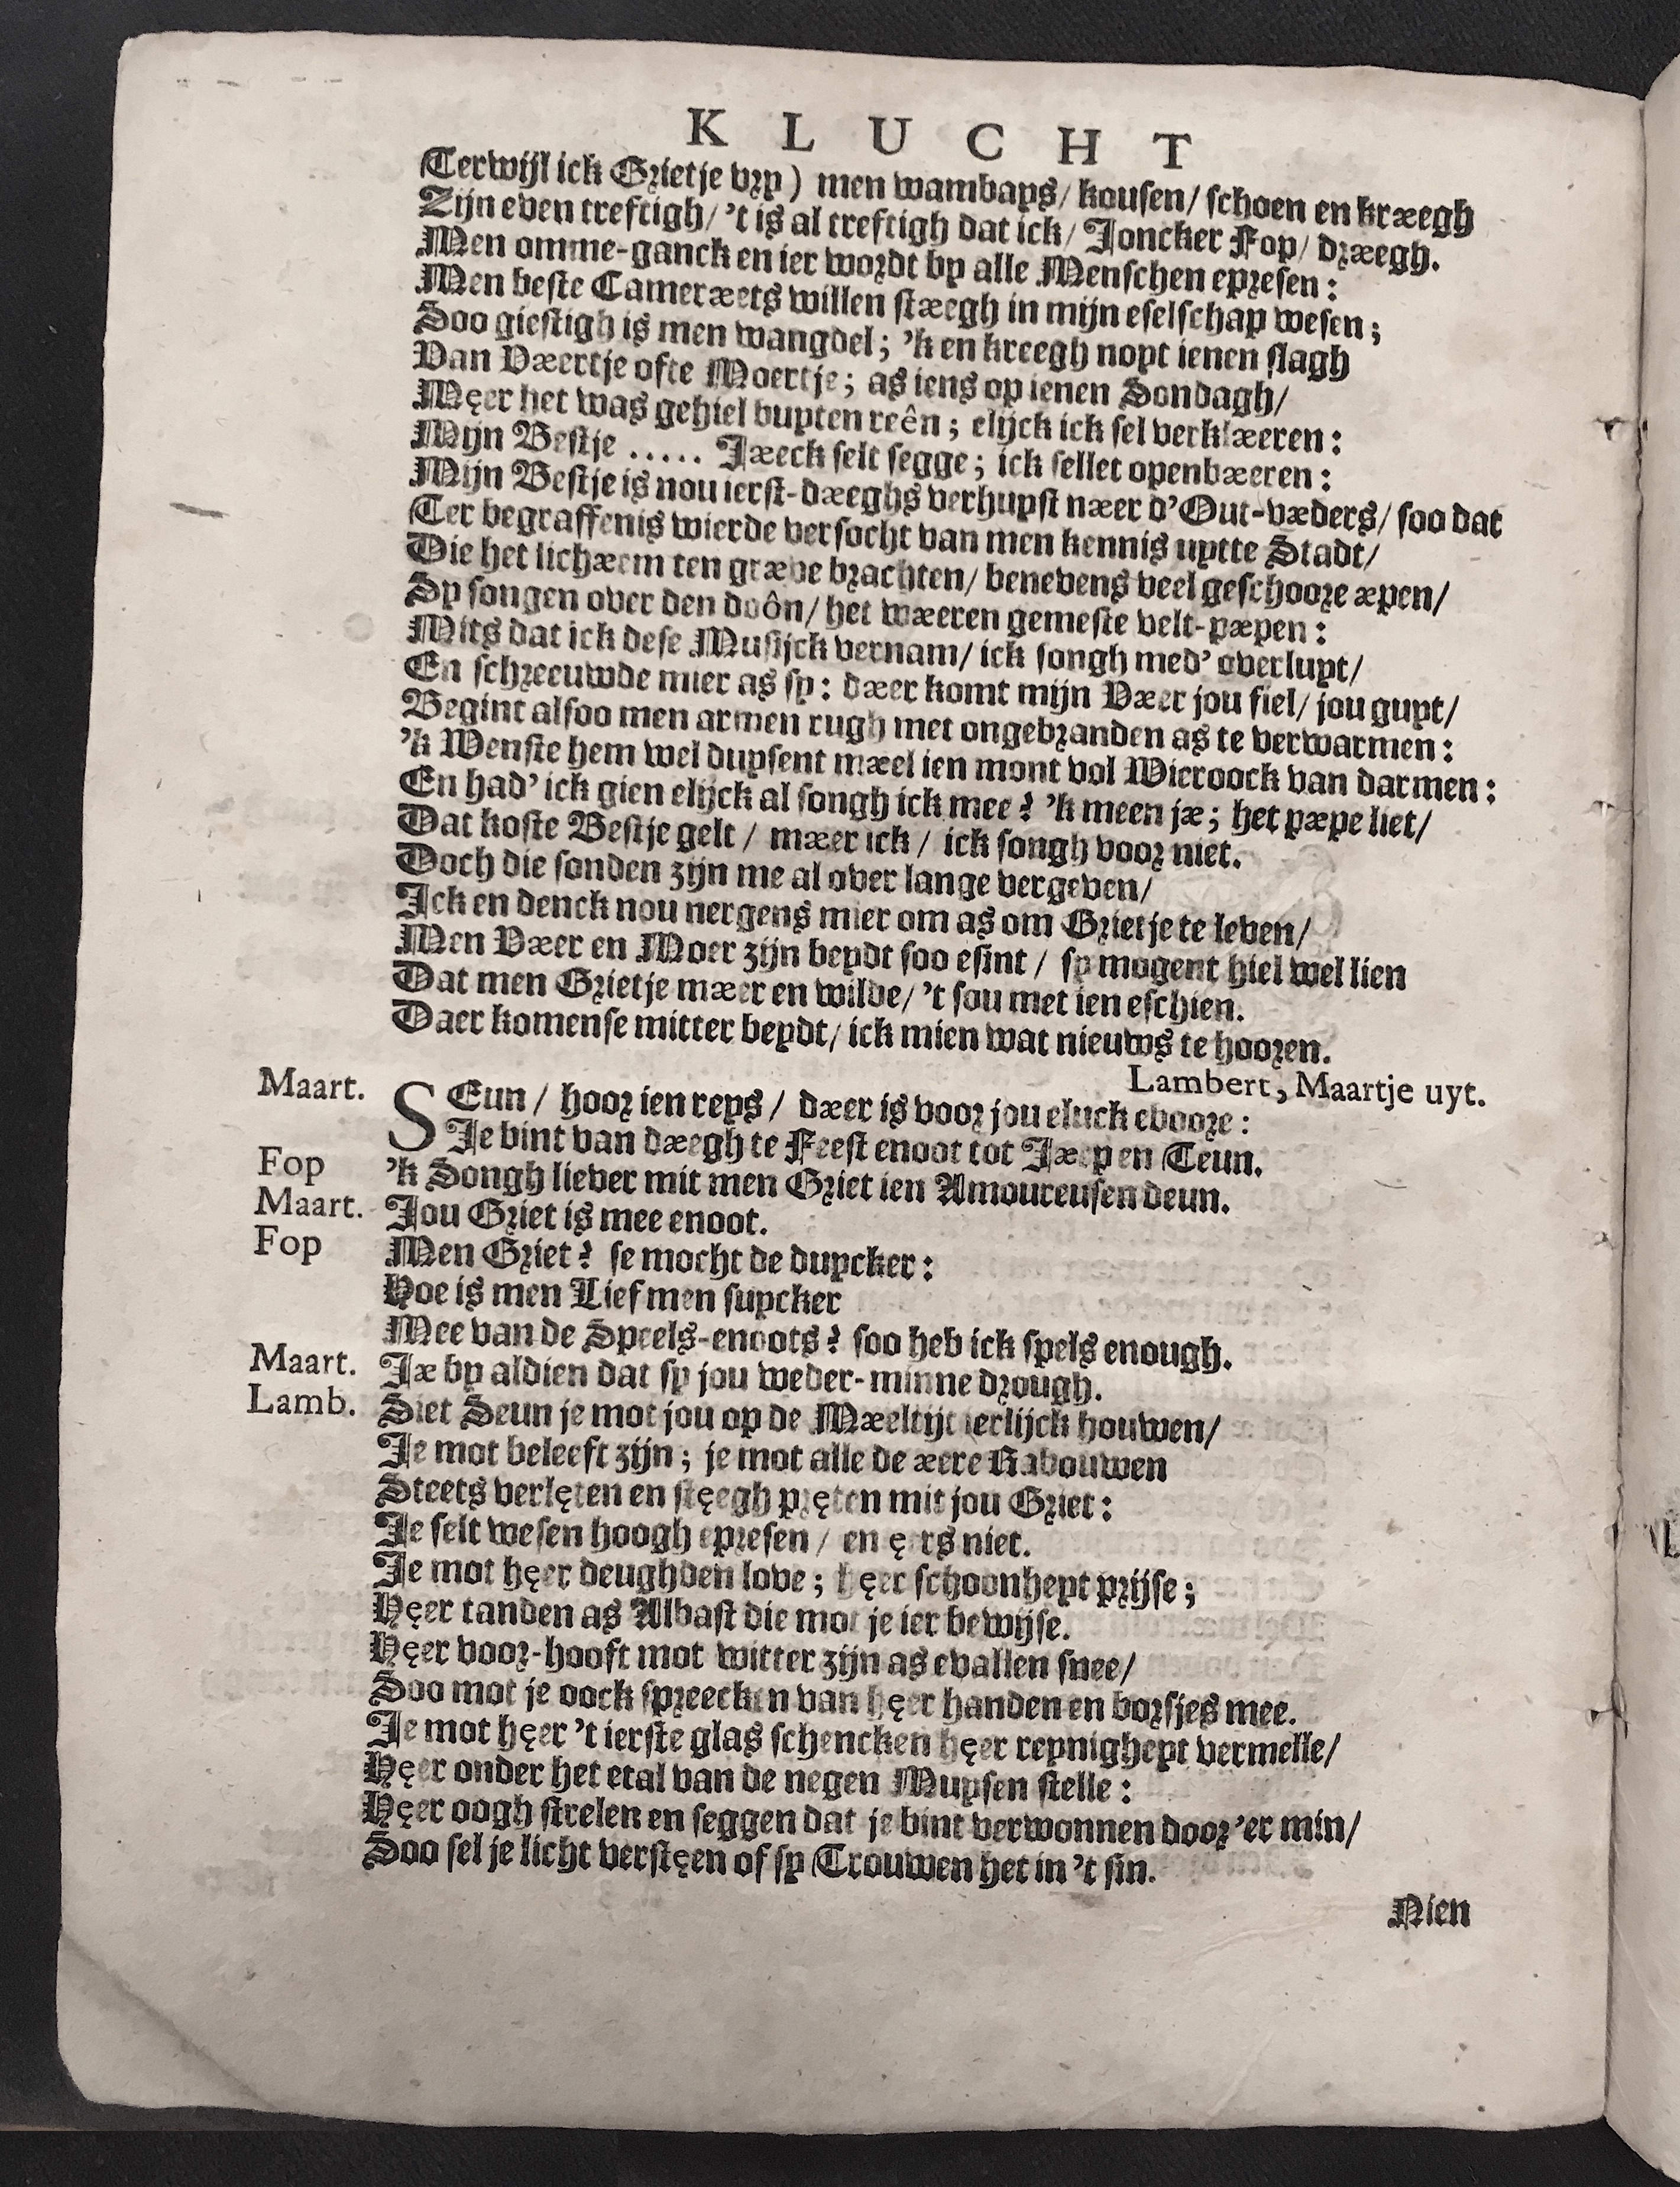 KLUCHT
(Terwijl ick Grietje vry) men wambays/ kousen/ schoen en kræegh
Zijn even treftigh/ 't is al treftigh dat ick/ Joncker Fop/ dræegh.
Men omme-ganck en ier wordt by alle Menschen epresen:
Men beste Cameræets willen stæegh in mijn eselschap wesen;
Soo giestigh is men wangdel; 'k en kreegh noyt ienen slagh
Van Væertje ofte Moertje; as iens op ienen Sondagh/
Męer het was gehiel buyten reên; elijck ick sel verklæeren:
Mijn Bestje ..... Jæeck selt segge; ick sellet openbæeren:
Mijn Bestje is nou ierst-dæeghs verhuyst næer d'Out-væders/ soo dat
Ter begraffenis wierde versocht van men kennis uytte Stadt/
Die het lichæem ten græve brachten/ benevens veel geschoore æpen/
Sy songen over den doôn/ het wæeren gemeste velt-pæpen:
Mits dat ick dese Musijck vernam/ ick songh med' overluyt/
En schreeuwde mier as sy: dæer komt mijn Væer jou fiel/ jou guyt/
Begint alsoo men armen rugh met ongebranden as te verwarmen:
'k Wenste hem wel duysent mæel ien mont vol Wieroock van darmen:
En had' ick gien elijck al songh ick mee? 'k meen jæ; het pæpe liet/
Dat koste Bestje gelt / mæer ick / ick songh voor niet.
Doch die sonden zijn me al over lange vergeven/
Ick en denck nou nergens mier om as om Grietje te leven/
Men Væer en Moer zijn beydt soo esint / sy mogent hiel wel lien
Dat men Grietje mæer en wilde/ 't sou met ien eschien.
Daer komense mitter beydt/ ick mien wat nieuws te hooren.
Lambert, Maartje uyt.
Maart. SEun / hoor ien reys / dæer is voor jou eluck evoore:
Je bint van dæegh te Feest enoot tot Jæep en Teun.
Fop 'k Songh liever mit men Griet ien Amoureusen deun.
Maart. Jou Griet is mee enoot.
Fop Men Griet? se mocht de duycker:
Hoe is men Lief men suycker
Mee van de Speels-enoots? soo heb ick spels enough.
Maart. Jæ by aldien dat sy jou weder-minne drough.
Lamb. Siet Seun je mot jou op de Mæeltijt ierlijck houwen/
Je mot beleeft zijn; je mot alle de æere Rabouwen
Steets verlęten en stęegh pręten mit jou Griet:
Je selt wesen hoogh epresen / en ęrs niet.
Je mot hęer deughden love; hęer schoonheyt prijse;
Hęer tanden as Albast die mot je ier bewijse.
Hęer voor-hooft mot witter zijn as evallen snee/
Soo mot je oock spreecken van hęer handen en borsjes mee.
Je mot hęer 't ierste glas schencken hęer reynigheyt vermelle/
Hęer onder het etal van de negen Muysen stelle:
Hęer oogh strelen en seggen dat je bint verwonnen door 'er min/
Soo sel je licht verstęen of sy Trouwen het in 't sin.
Nien